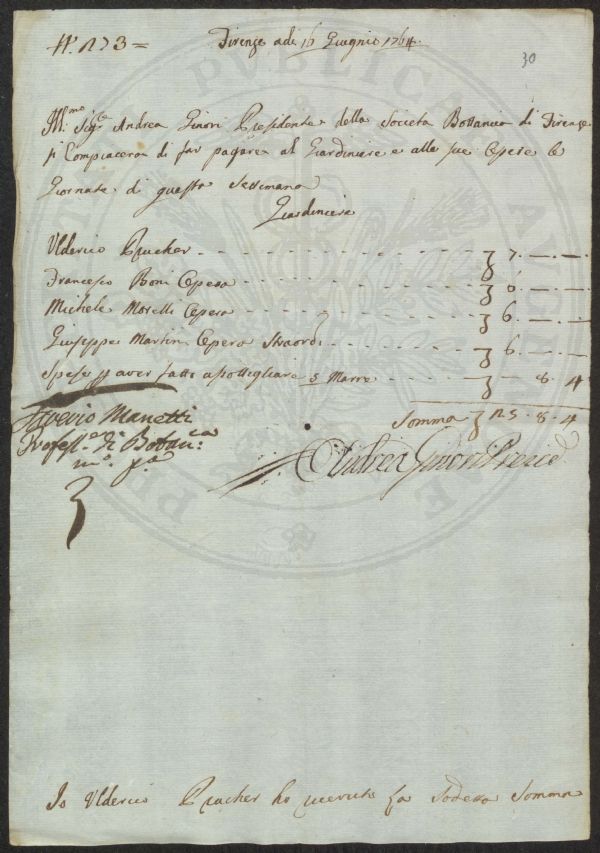 N. 173 =
Firenze adi 16 Giugnio 1764.
30
Ill.mo Sig.re Andrea Ginori Presidente della Società Bottanica di Firenze
si Compiacerà di far pagare al Giardiniere e alle sue Opere le
Giornate di questa Settimana
Giardiniere
Ulderico Prucher - - - 7. —. —
Francesco Boni Opera - - - 6. —. —
Michele Morelli Opera - - - 6. —. —
Giuseppe Martini Opera Straord. - - - 6. —. —
Spese p aver fatto assottigliare 5 Marre - - - —. 8. 4
Somma 25. 8. 4
Saverio Manetti
Profess.e di Botan.ca
m.o p.a
Andrea Ginori Presid.e
Io Ulderico Prucher ho ricevuto la Sodetta Somma
PUBLICA